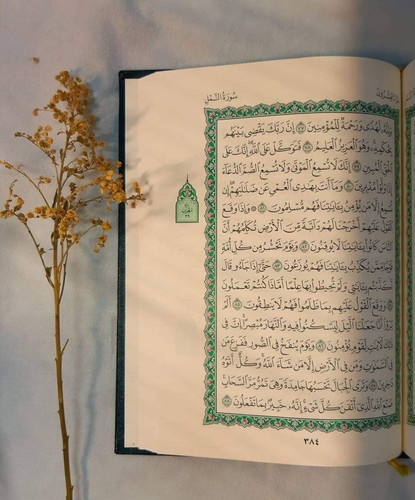 سُورَةُ النَّمْلِ
وَإِنَّهُۥ لَهُدًى وَرَحْمَةٌ لِّلْمُؤْمِنِينَ ٧٧ إِنَّ رَبَّكَ يَقْضِى بَيْنَهُم
بِحُكْمِهِۦ ۚ وَهُوَ ٱلْعَزِيزُ ٱلْعَلِيمُ ٧٨ فَتَوَكَّلْ عَلَى ٱللَّهِ ۖ إِنَّكَ عَلَى
ٱلْحَقِّ ٱلْمُبِينِ ٧٩ إِنَّكَ لَا تُسْمِعُ ٱلْمَوْتَىٰ وَلَا تُسْمِعُ ٱلصُّمَّ ٱلدُّعَآءَ
إِذَا وَلَّوْا۟ مُدْبِرِينَ ٨٠ وَمَآ أَنتَ بِهَٰدِى ٱلْعُمْىِ عَن ضَلَٰلَتِهِمْ ۖ إِن
تُسْمِعُ إِلَّا مَن يُؤْمِنُ بِـَٔايَٰتِنَا فَهُم مُّسْلِمُونَ ٨١ ۞ وَإِذَا وَقَعَ
ٱلْقَوْلُ عَلَيْهِمْ أَخْرَجْنَا لَهُمْ دَآبَّةً مِّنَ ٱلْأَرْضِ تُكَلِّمُهُمْ أَنَّ
ٱلنَّاسَ كَانُوا۟ بِـَٔايَٰتِنَا لَا يُوقِنُونَ ٨٢ وَيَوْمَ نَحْشُرُ مِن كُلِّ أُمَّةٍ
فَوْجًا مِّمَّن يُكَذِّبُ بِـَٔايَٰتِنَا فَهُمْ يُوزَعُونَ ٨٣ حَتَّىٰٓ إِذَا جَآءُو قَالَ
أَكَذَّبْتُم بِـَٔايَٰتِى وَلَمْ تُحِيطُوا۟ بِهَا عِلْمًا أَمَّاذَا كُنتُمْ تَعْمَلُونَ
٨٤ وَوَقَعَ ٱلْقَوْلُ عَلَيْهِم بِمَا ظَلَمُوا۟ فَهُمْ لَا يَنطِقُونَ ٨٥ أَلَمْ
يَرَوْا۟ أَنَّا جَعَلْنَا ٱلَّيْلَ لِيَسْكُنُوا۟ فِيهِ وَٱلنَّهَارَ مُبْصِرًا ۚ إِنَّ فِى
ذَٰلِكَ لَـَٔايَٰتٍ لِّقَوْمٍ يُؤْمِنُونَ ٨٦ وَيَوْمَ يُنفَخُ فِى ٱلصُّورِ فَفَزِعَ مَن
فِى ٱلسَّمَٰوَٰتِ وَمَن فِى ٱلْأَرْضِ إِلَّا مَن شَآءَ ٱللَّهُ ۚ وَكُلٌّ أَتَوْهُ
دَٰخِرِينَ ٨٧ وَتَرَى ٱلْجِبَالَ تَحْسَبُهَا جَامِدَةً وَهِىَ تَمُرُّ مَرَّ ٱلسَّحَابِ ۚ
صُنْعَ ٱللَّهِ ٱلَّذِىٓ أَتْقَنَ كُلَّ شَىْءٍ ۚ إِنَّهُۥ خَبِيرٌۢ بِمَا تَفْعَلُونَ ٨٨
الحزب
٣٩
٣٨٤